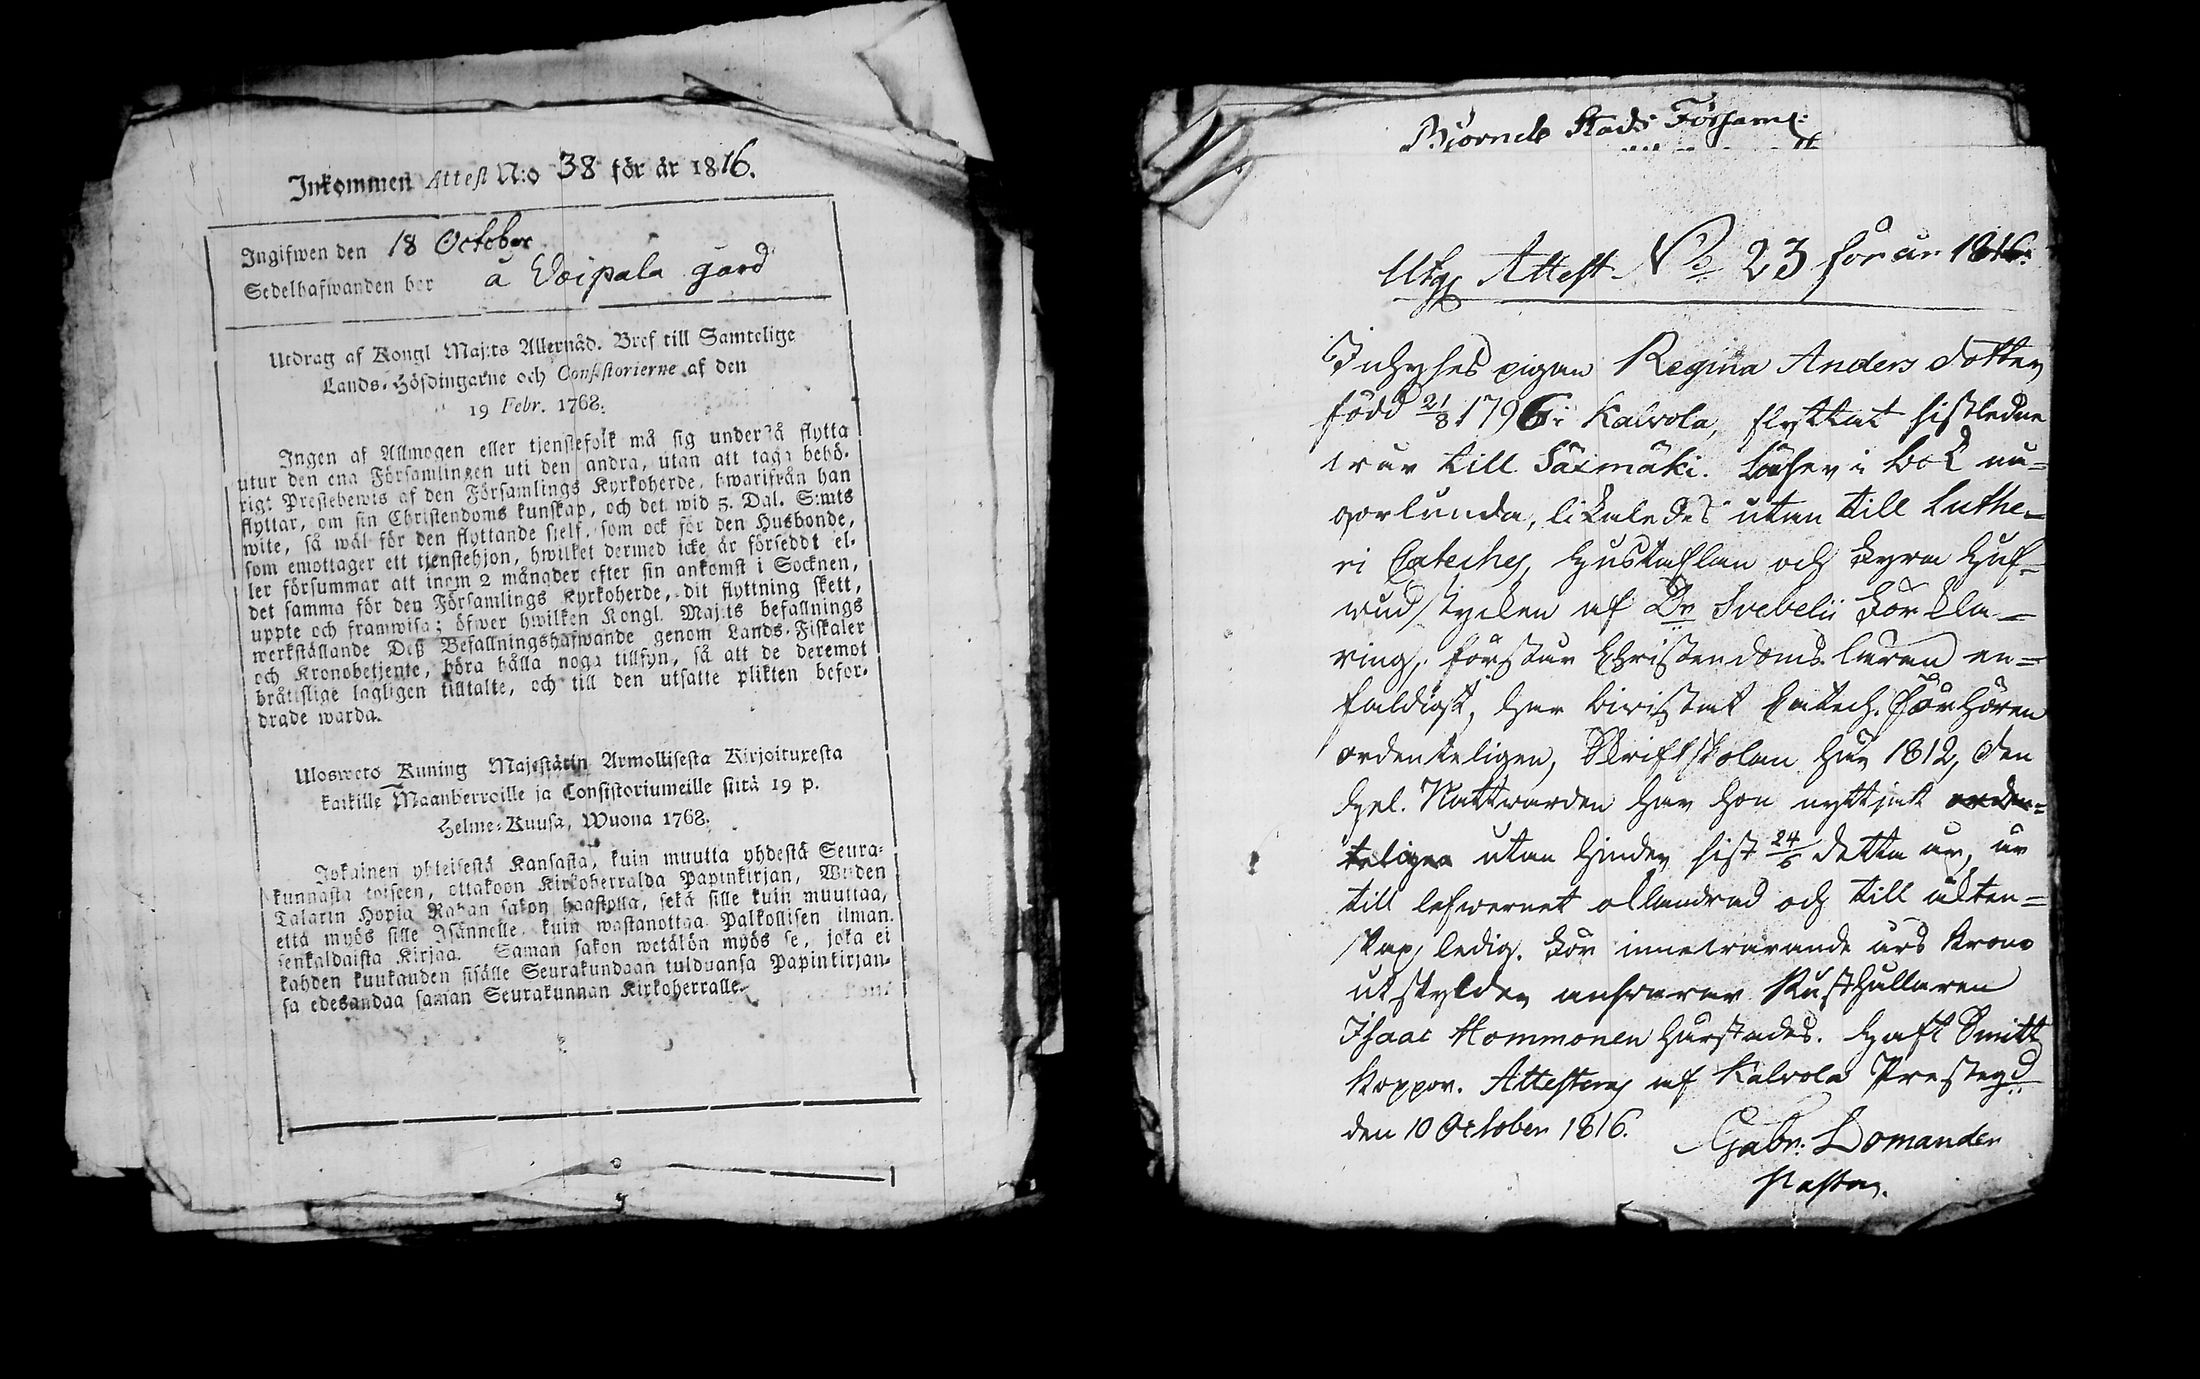 Inkommen Attest N:o 38 för år 1816.
Ingifwen den 18 October
Sedelhafwanden bor å Voipala gård
Utdrag af Kongl Maj:ts Allernåd. Bref till Samtelige
Lands-Höfdingarne och Consistorierne af den
19 Febr. 1768.
Ingen af Allmogen eller tjenstefolk må sig understå flytta
utur den ena Församlingen uti den andra, utan att taga behö-
rigt Prestebewis af den Församlings Kyrkoherde, hwarifrån han
flyttar, om sin Christendoms kunskap, och det wid 3. Dal. S:mts
wite, så wäl för den flyttande sjelf, som ock för den Husbonde,
som emottager ett tjenstehjon, hwilket dermed icke är försedt el-
ler försummar att inom 2 månader efter sin ankomst i Socknen,
det samma för den Församlings Kyrkoherde, dit flyttning skett,
uppte och framwisa; öfwer hwilken Kongl. Maj:ts befallnings
werkställande Deß Befallningshafwande genom Lands-Fiskaler
och Kronobetjente, böra hålla noga tillsyn, så att de deremot
bråttslige lagligen tilltalte, och till den utsatte plikten befor-
drade warda.
Ulosweto Kuning Majestätin Armollisesta Kirjoituxesta
kaikille Maanherroille ja Consistoriumeille siitä 19 p.
Helme-Kuusa, Wuona 1768.
Jokainen yhteisestä Kansasta, kuin muutta yhdestä Seura-
kunnasta toiseen, ottakoon Kirkoherralda Papinkirjan, Wiiden
Talarin Hopia Rahan sakon haastolla, sekä sille kuin muuttaa,
että myös sille Isännelle, kuin wastanottaa Palkollisen ilman
senkaldaista Kirjaa. Saman sakon wetälön myös se, joka ei
kahden kuukauden sisälle Seurakundaan tulduansa Papinkirjan-
sa edesandaa saman Seurakunnan Kirkoherralle.
Bjorneb Stads Församl:
Utg Attest No 23 för år 1816.
Inhyses pigan Regina Anders dotter
född 21/8 1796 i Kalvola, flyttat sistledne
wår till Säxmäki. Läser i bok nå-
gorlunda, likaledes utan till Luthe-
ri Cateches, hustaflan och fyra huf-
wudstycken af Dr Svebelii förkla-
ring, förstår Christendoms läran en-
faldigt, har bivistat Catech. Förhören
ordenteligen, Skriftskolan har 1812, den
hel. Nattvarden har hon nyttjat orden-
teligen utan hinder sist 24/6 detta år, är
till lefwernet oklandrad och till äkten-
skap ledig. För innewarande års Krono
utskylder answarar Rusthållaren
Isaac Hommonen härstädes. Haft Smitt
koppor. Attesteras af Kalvola Prestegd
den 10 October 1816.
Gabr: Domander
Pastor.